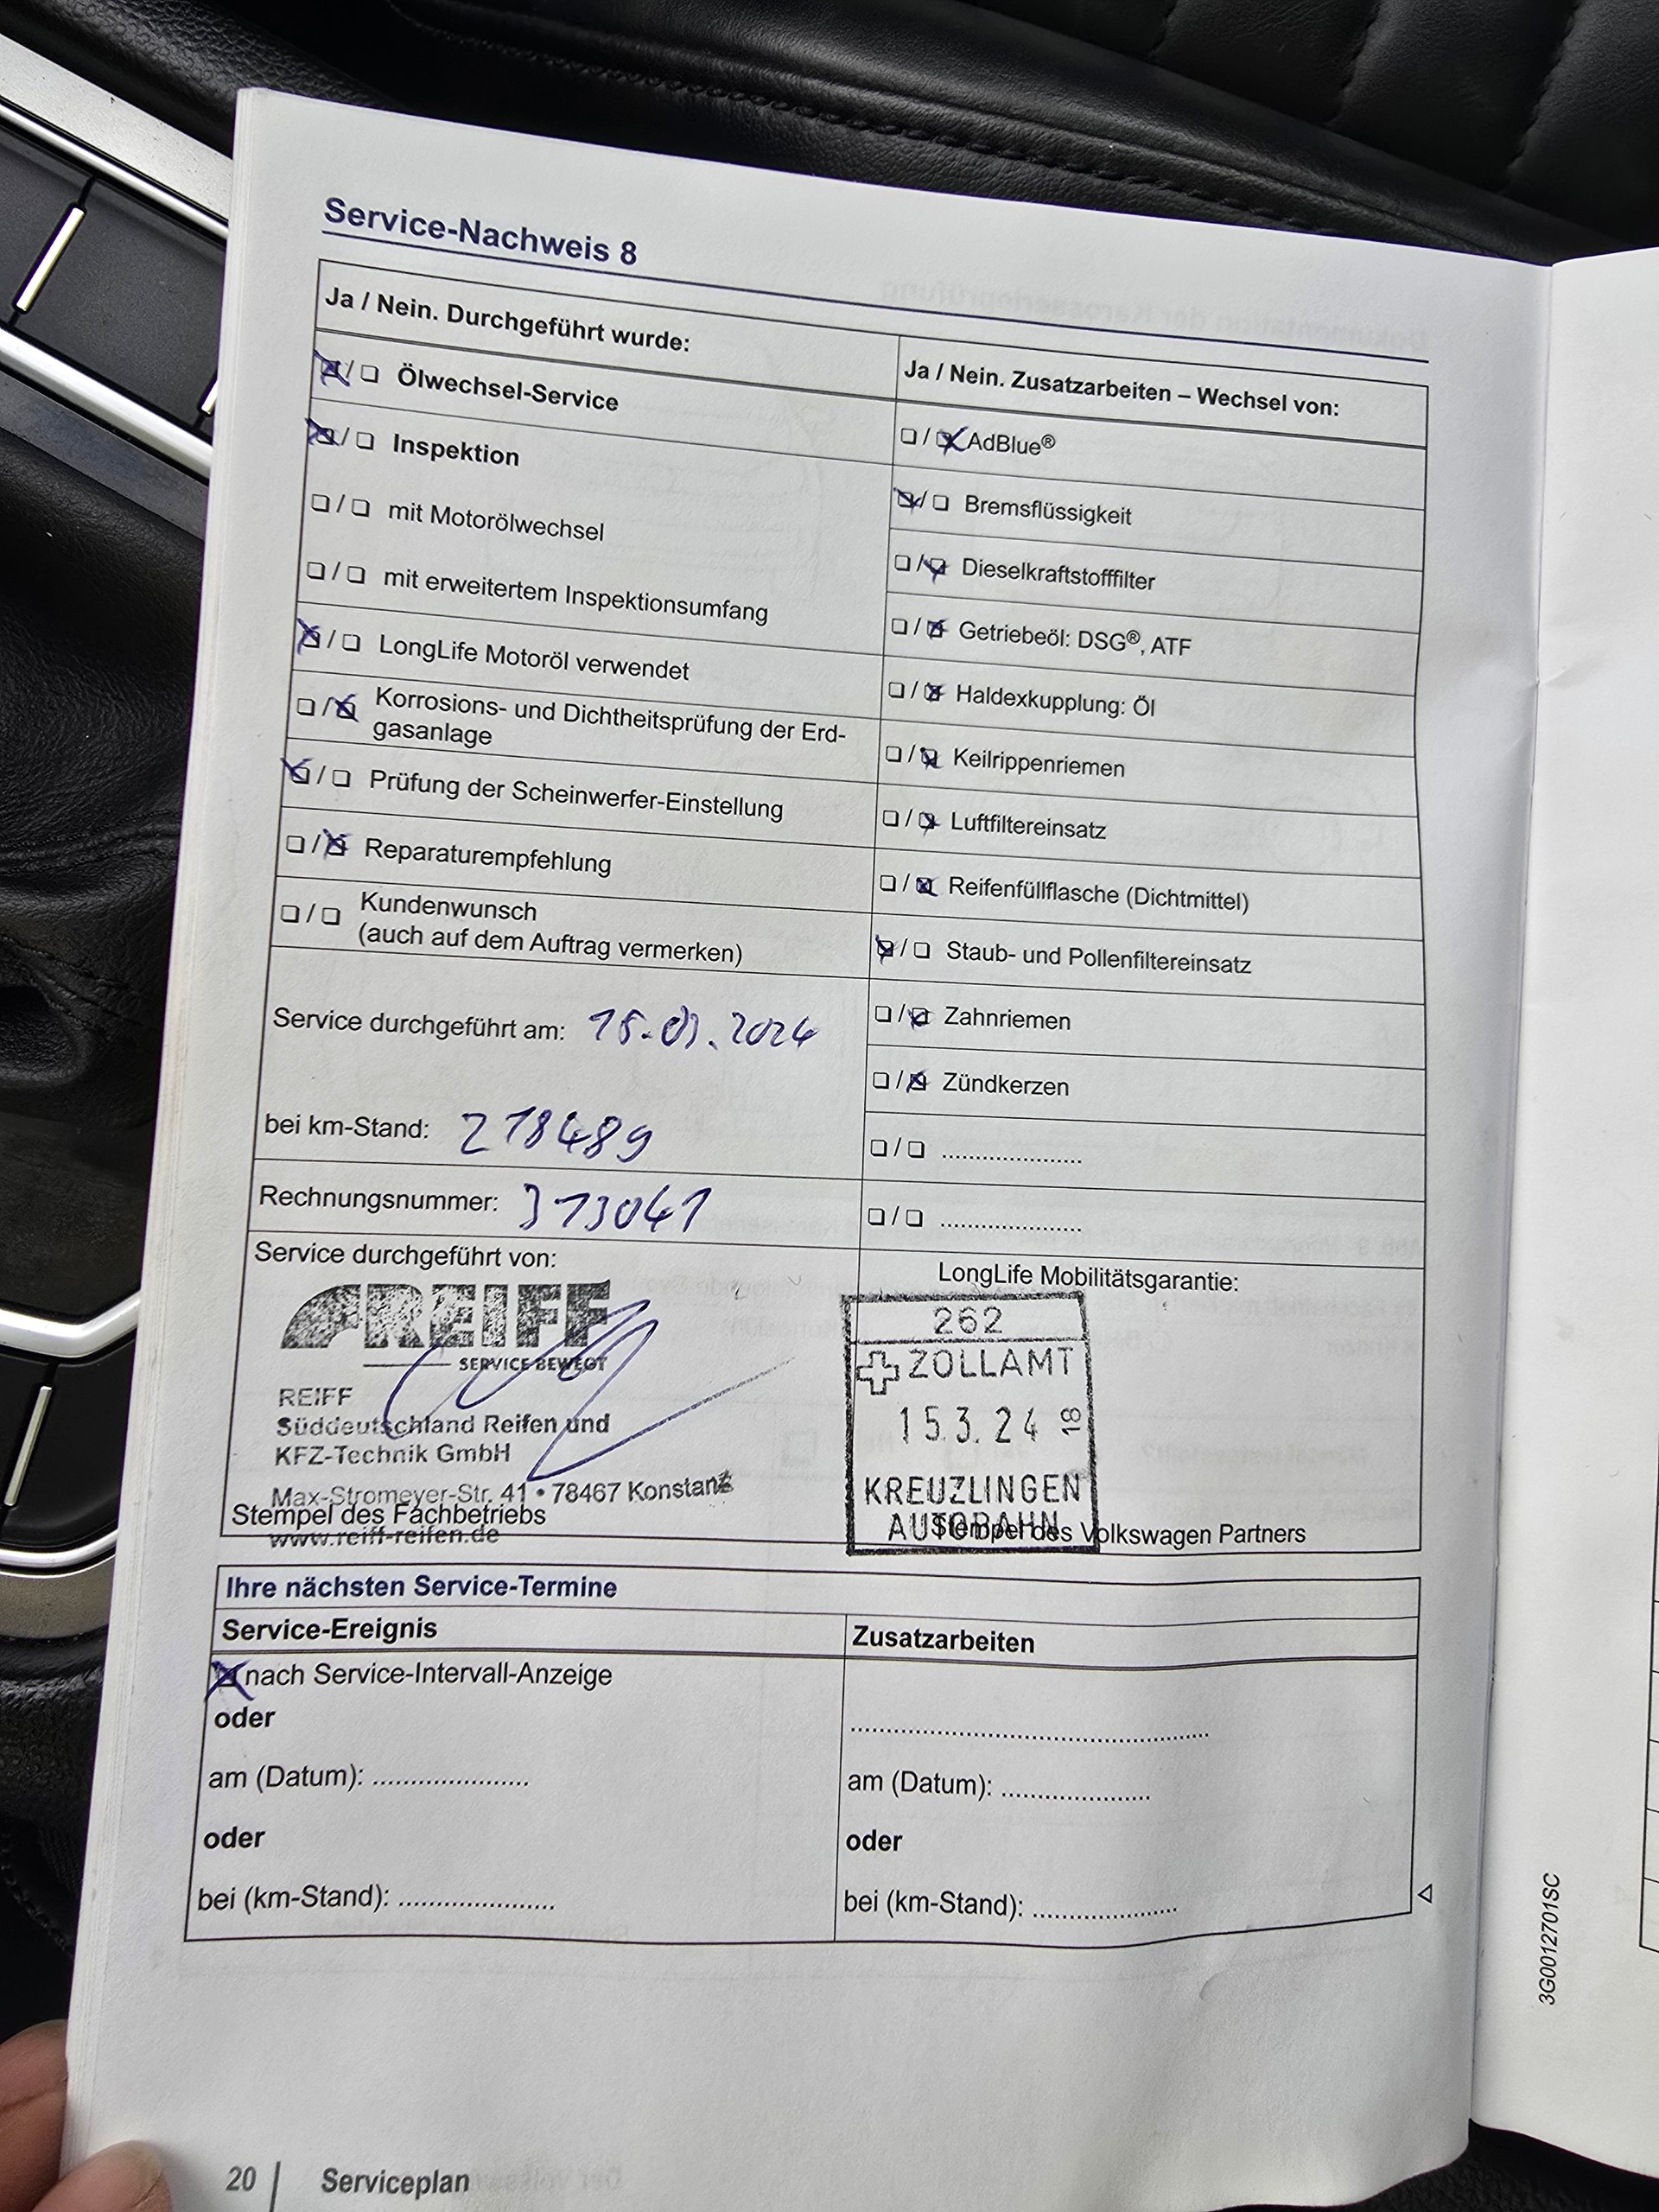 Service-Nachweis 8
Ja / Nein. Durchgeführt wurde:
❑ / ❑ Ölwechsel-Service
❑ / ❑ Inspektion
❑ / ❑ mit Motorölwechsel
❑ / ❑ mit erweitertem Inspektionsumfang
❑ / ❑ LongLife Motoröl verwendet
❑ / ❑ Korrosions- und Dichtheitsprüfung der Erd-
gasanlage
❑ / ❑ Prüfung der Scheinwerfer-Einstellung
❑ / ❑ Reparaturempfehlung
❑ / ❑ Kundenwunsch
(auch auf dem Auftrag vermerken)
Service durchgeführt am: 15.03.2024
bei km-Stand: 218489
Rechnungsnummer: 313041
Service durchgeführt von:
REIFF
SERVICE BEWEGT
REIFF
Süddeutschland Reifen und
KFZ-Technik GmbH
Max-Stromeyer-Str. 41 • 78467 Konstanz
Stempel des Fachbetriebs
www.reiff-reifen.de
Ja / Nein. Zusatzarbeiten – Wechsel von:
❑ / ❑ AdBlue®
❑ / ❑ Bremsflüssigkeit
❑ / ❑ Dieselkraftstofffilter
❑ / ❑ Getriebeöl: DSG®, ATF
❑ / ❑ Haldexkupplung: Öl
❑ / ❑ Keilrippenriemen
❑ / ❑ Luftfiltereinsatz
❑ / ❑ Reifenfüllflasche (Dichtmittel)
❑ / ❑ Staub- und Pollenfiltereinsatz
❑ / ❑ Zahnriemen
❑ / ❑ Zündkerzen
❑ / ❑ .....................
❑ / ❑ .....................
LongLife Mobilitätsgarantie:
262
ZOLLAMT
15.3.24 18
KREUZLINGEN
AUTOBAHN
Stempel des Volkswagen Partners
Ihre nächsten Service-Termine
Service-Ereignis
❑ nach Service-Intervall-Anzeige
oder
am (Datum): .......................
oder
bei (km-Stand): .......................
Zusatzarbeiten
.....................................................
am (Datum): .......................
oder
bei (km-Stand): .......................
3G0012701SC
20 | Serviceplan